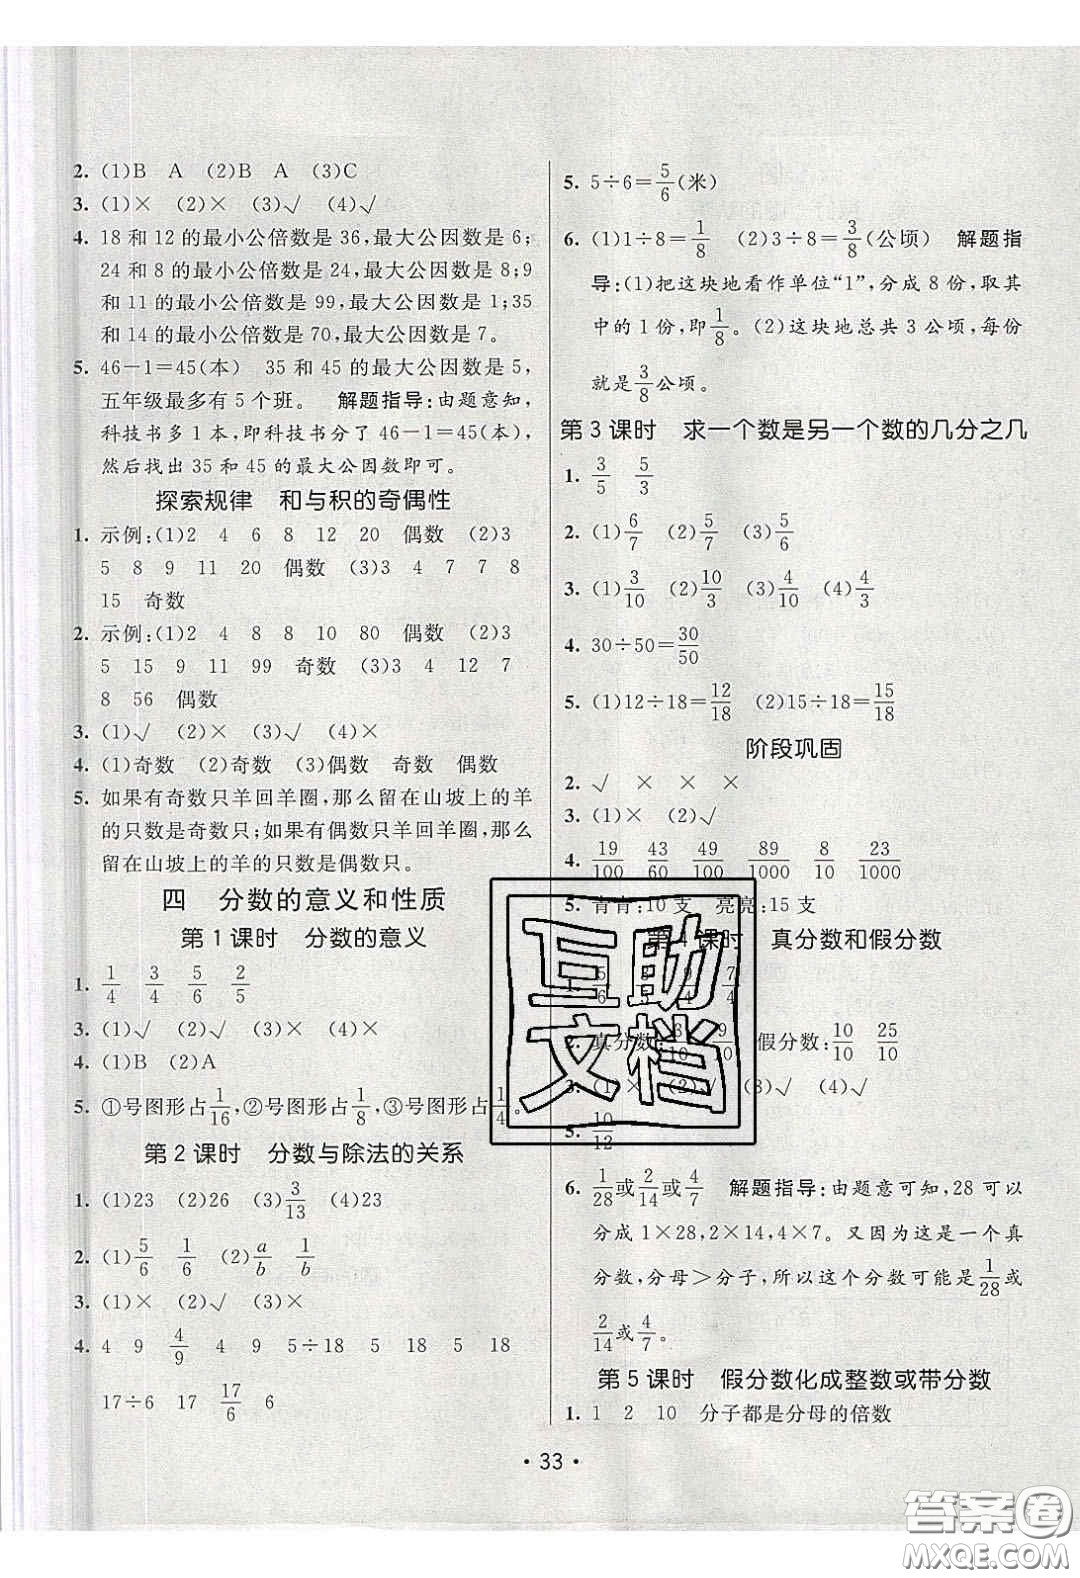 2. (1)B A (2)B A (3)C
3. (1)× (2)× (3)√ (4)√
4. 18 和 12 的最小公倍数是 36,最大公因数是 6;
24 和 8 的最小公倍数是 24,最大公因数是 8;9
和 11 的最小公倍数是 99,最大公因数是 1;35
和 14 的最小公倍数是 70,最大公因数是 7。
5. 46-1=45(本) 35 和 45 的最大公因数是 5,
五年级最多有 5 个班。 解题指导:由题意知,
科技书多 1 本,即科技书分了 46-1=45(本),
然后找出 35 和 45 的最大公因数即可。
探索规律 和与积的奇偶性
1. 示例:(1)2 4 6 8 12 20 偶数 (2)3
5 8 9 11 20 偶数 (3)3 4 7 7 8
15 奇数
2. 示例:(1)2 4 8 8 10 80 偶数 (2)3
5 15 9 11 99 奇数 (3)3 4 12 7
8 56 偶数
3. (1)√ (2)× (3)√ (4)×
4. (1)奇数 (2)奇数 (3)偶数 奇数 偶数
5. 如果有奇数只羊回羊圈,那么留在山坡上的羊
的只数是奇数只;如果有偶数只羊回羊圈,那么
留在山坡上的羊的只数是偶数只。
四 分数的意义和性质
第 1 课时 分数的意义
1. 1/4 3/4 5/6 2/5
3. (1)√ (2)√ (3)× (4)×
4. (1)B (2)A
5. ①号图形占1/16,②号图形占1/8,③号图形占1/4。
第 2 课时 分数与除法的关系
1. (1)23 (2)26 (3)3/13 (4)23
2. (1)5/6 1/6 (2)a/b 1/b
3. (1)× (2)√ (3)×
4. 4 9 4/9 4 9 5÷18 5 18 5 18
17÷6 17 17/6 6
5. 5÷6=5/6(米)
6. (1)1÷8=1/8 (2)3÷8=3/8(公顷) 解题指
导:(1)把这块地看作单位“1”,分成 8 份,取其
中的 1 份,即1/8。(2)这块地总共 3 公顷,每份
就是3/8公顷。
第 3 课时 求一个数是另一个数的几分之几
1. 3/5 5/3
2. (1)6/7 (2)5/7 (3)5/6
3. (1)3/10 (2)10/3 (3)4/10 (4)4/3
4. 30÷50=30/50
5. (1)12÷18=12/18 (2)15÷18=15/18
阶段巩固
2. √ × × ×
3. (1)× (2)√
4. 19/100 43/60 49/100 89/1000 8/10 23/1000
5. 肯肯:10 支 亮亮:15 支
第 4 课时 真分数和假分数
1. 5/6 /5 9/4 7/4
2. 真分数:3/10 9/10 假分数:10/10 25/10
3. (1)× (2)√ (3)√ (4)√
5. 10/12
6. 1/28或2/14或4/7 解题指导:由题意可知,28 可以
分成 1×28,2×14,4×7。又因为这是一个真
分数,分母>分子,所以这个分数可能是1/28或
2/14或4/7。
第 5 课时 假分数化成整数或带分数
1. 1 2 10 分子都是分母的倍数
互助
文档
• 33 •
答案圈
MXQE.COM